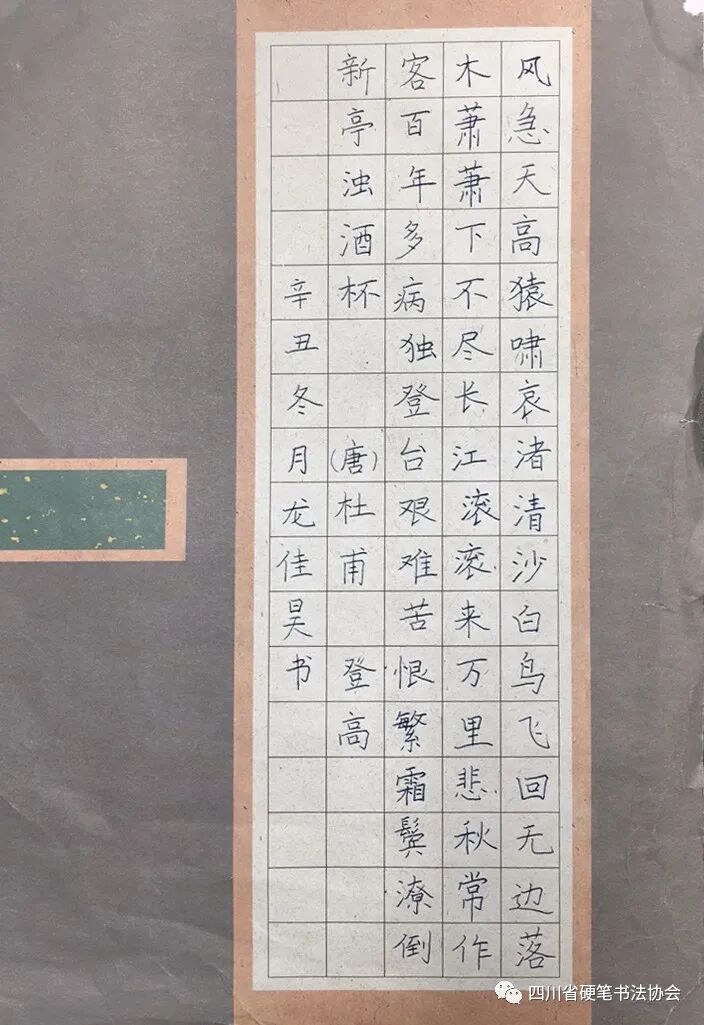 风急天高猿啸哀渚清沙白鸟飞回无边落
木萧萧下不尽长江滚滚来万里悲秋常作
客百年多病独登台艰难苦恨繁霜鬓潦倒
新亭浊酒杯 (唐)杜甫 登高
辛丑冬月龙佳昊书
四川省硬笔书法协会